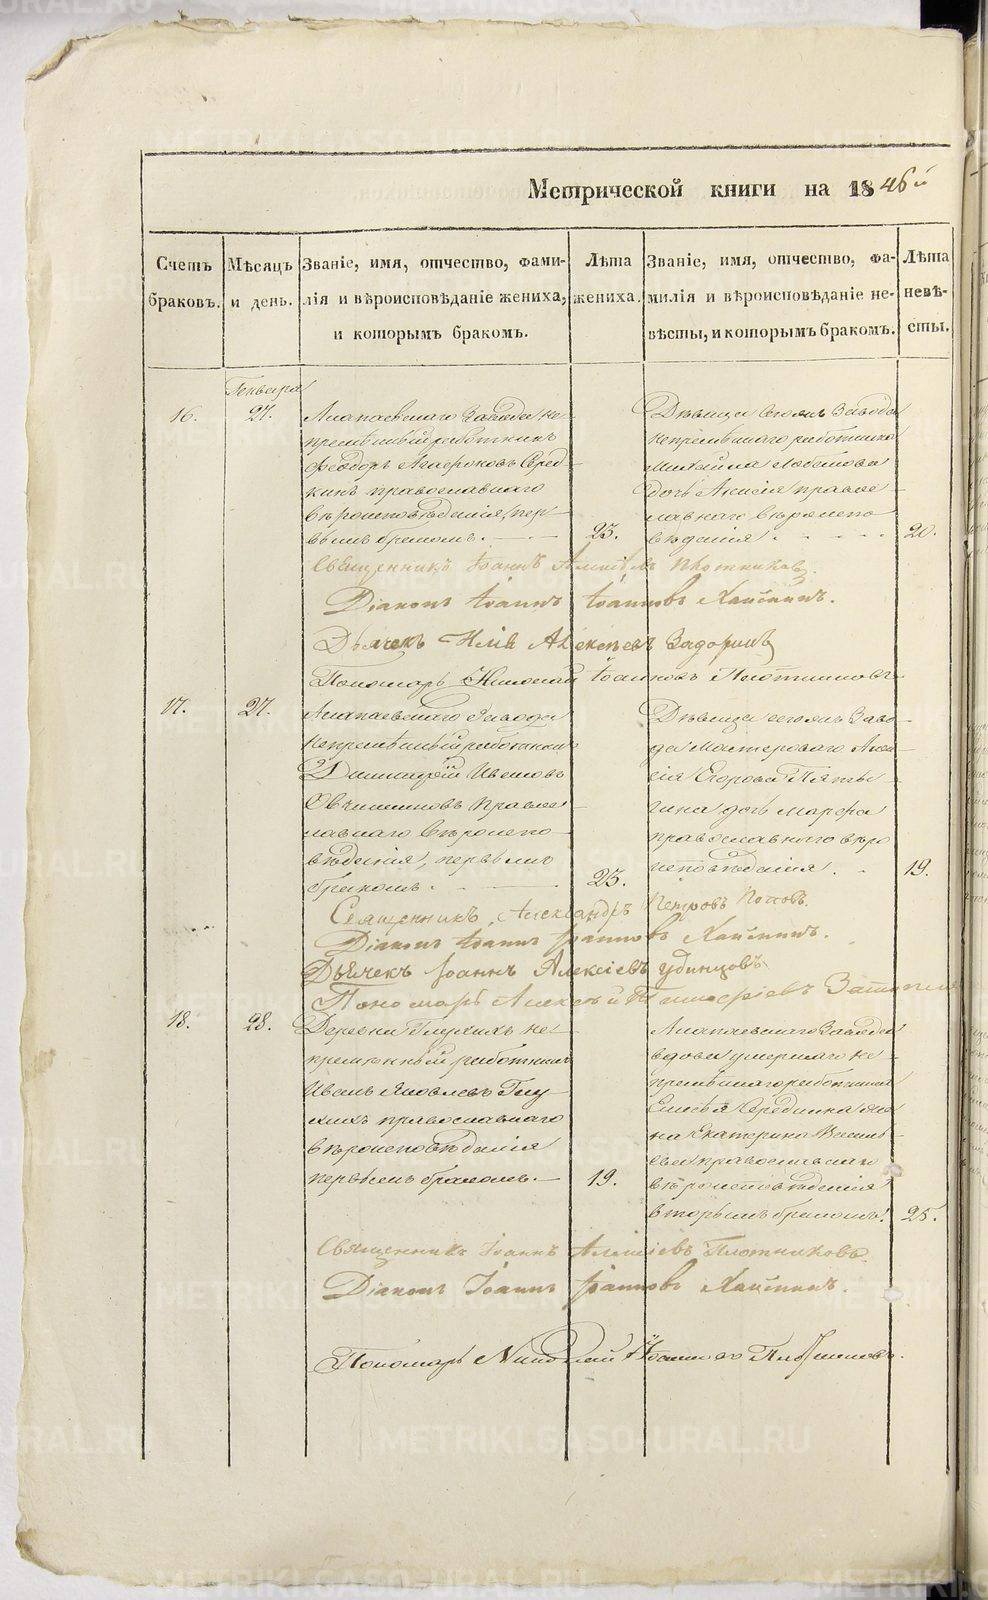 Метрической книги на 1846й
Счетъ браковъ.
Мѣсяцъ и день.
Званіе, имя, отчество, фами-
лія и вѣроисповѣданіе жениха,
и которымъ бракомъ.
Лѣта жениха.
Званіе, имя, отчество, фа-
милія и вѣроисповѣданіе не-
вѣсты, и которымъ бракомъ.
Лѣта невѣ-
сты.
Генваря
16.
27.
Алапаевскаго Завода не-
премѣнный работникъ
Феодоръ Агафоновъ Серед-
кинъ православнаго
вѣроисповѣданія, пер-
вымъ бракомъ.
23.
Дѣвица тогожъ Завода
непремѣннаго работника
Михаила
дочь Аксинія правос-
лавнаго вѣроиспо-
вѣданія.
20.
Священникъ Іоаннъ Алексіевъ Плотниковъ.
Діаконъ Іоаннъ Іоанновъ Хлопинъ.
Дьячекъ Илія Алексѣевъ Задоринъ
Пономарь Николай Іоанновъ Плотниковъ
17.
27.
Алапаевскаго Завода
непремѣнный работникъ
Димитрій Ивановъ
Овчинниковъ правос-
лавнаго вѣроиспо-
вѣданія, первымъ
бракомъ.
23.
Дѣвица тогожъ Заво-
да мастероваго Алек-
сія Егорова Пяты-
гина дочь Марфа
православнаго вѣро
исповѣданія.
19.
Священникъ Александръ Петровъ Поповъ.
Діаконъ Іоаннъ Іоанновъ Хлопинъ.
Дьячекъ Іоаннъ Алексіевъ Удинцовъ
Пономарь Алексѣй
18.
28.
Деревни Глухихъ не-
премѣнный работникъ
Иванъ Яковлевъ Глу-
хихъ православнаго
вѣроисповѣданія
первымъ бракомъ.
19.
Алапаевскаго Завода
вдова умершаго не-
премѣннаго работника
Середкина же-
на Екатерина Василь-
ева православнаго
вѣроисповѣданія
вторымъ бракомъ.
25.
Священникъ Іоаннъ Алексіевъ Плотниковъ
Діаконъ Іоаннъ Іоанновъ Хлопинъ.
Пономарь Николай Іоанновъ Плотниковъ.
METRIKI.GASO-URAL.RU